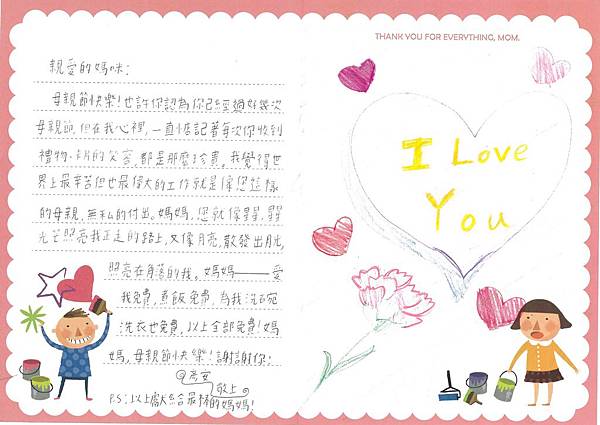 親愛的媽咪:
母親節快樂!也許你認為你已經過好幾次
母親節,但在我心裡,一直惦記著每次你收到
禮物、卡片的笑容,都是那麼珍貴,我覺得世
界上最辛苦但也最偉大的工作就是像您這樣
的母親,無私的付出。媽媽,您就像星星,
光芒照亮我正走的路上,又像月亮,散發出月光,
照亮在角落的我。媽媽——愛
我免費,煮飯免費,為我洗碗
洗衣也免費,以上全部免費!媽
媽,母親節快樂!謝謝你!
敬上
P.S:以上獻給最棒的媽媽!
THANK YOU FOR EVERYTHING, MOM.
I Love
You